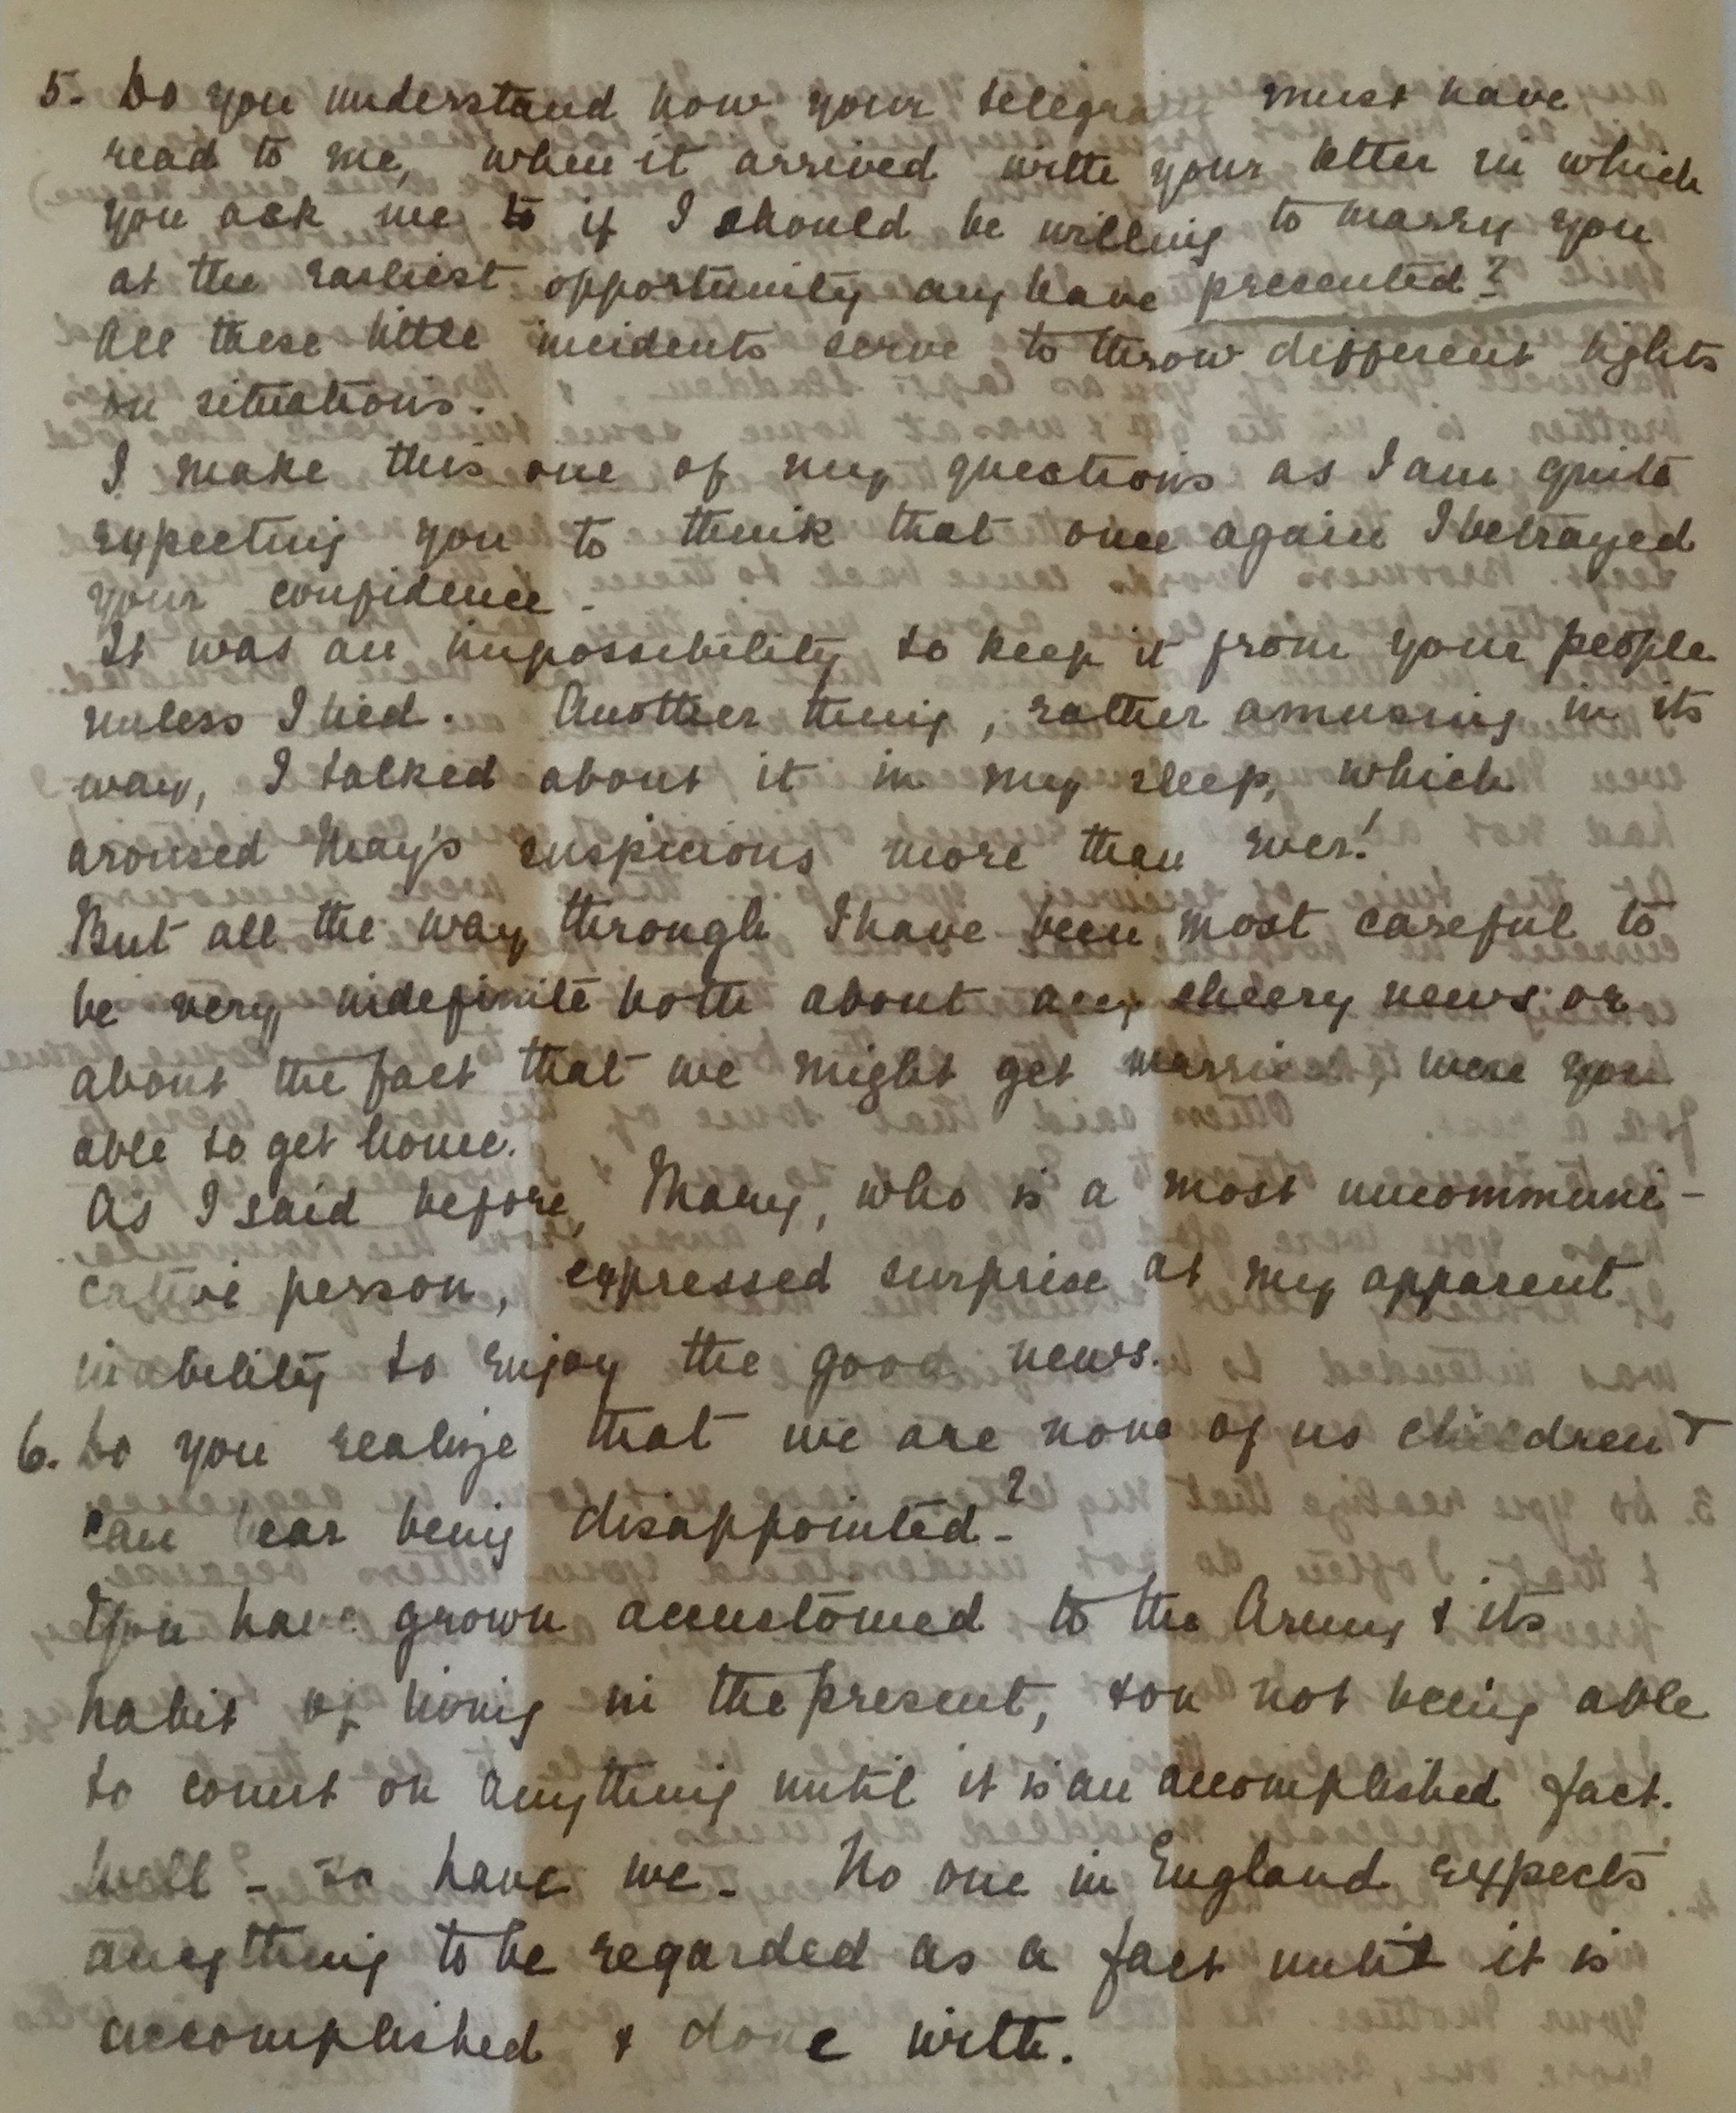 5. Do you understand how your telegram must have
read to me, when it arrived with your letter in which
you ask me to if I should be willing to marry you
at the earliest opportunity any have presented?
All these little incidents serve to throw different lights
on situations.
I make this one of my questions as I am quite
expecting you to think that once again I betrayed
your confidence.
It was an impossibility to keep it from your people
unless I lied. Another thing, rather amusing in its
way, I talked about it in my sleep, which
aroused May's suspicions more than ever!
But all the way through I have been most careful to
be very indefinite both about any cheery news or
about the fact that we might get married, were you
able to get home.
As I said before, Mary, who is a most uncommuni-
cative person, expressed surprise at my apparent
inability to enjoy the good news.
6. Do you realize that we are none of us children &
can bear being disappointed?
You have grown accustomed to the Army & its
habit of living in the present, & on not being able
to count on anything until it is an accomplished fact.
Well - so have we - No one in England expects
anything to be regarded as a fact until it is
accomplished & done with.